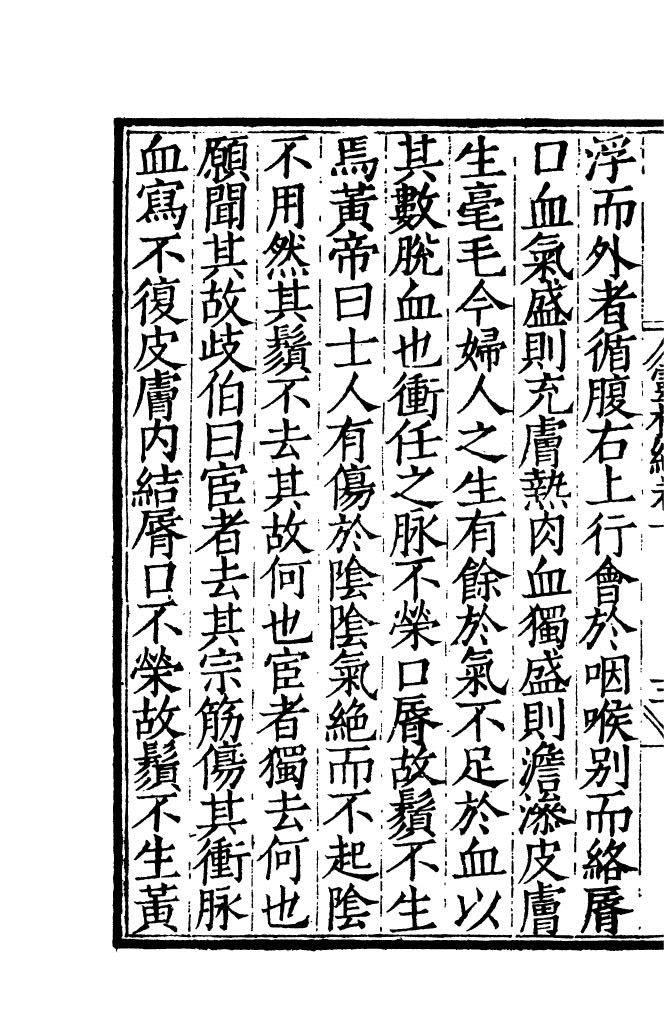 浮而外者循腹右上行會於咽喉别而絡脣
口血氣盛則充膚熱肉血獨盛則澹滲皮膚
生毫毛今婦人之生有餘於氣不足於血以
其數脫血也衝任之脉不榮口脣故鬚不生
焉黃帝曰士人有傷於陰陰氣絶而不起陰
不用然其鬚不去其故何也宦者獨去何也
願聞其故歧伯曰宦者去其宗筋傷其衝脉
血寫不復皮膚内結脣口不榮故鬚不生黃